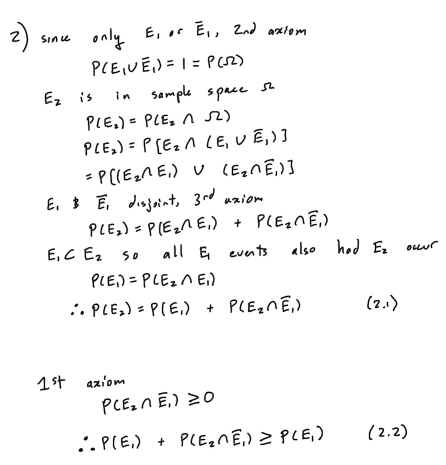 2) since only E₁ or Ē₁, 2nd axiom
P(E₁∪Ē₁) = 1 = P(Ω)
E₂ is in sample space Ω
P(E₂) = P(E₂ ∩ Ω)
P(E₂) = P[E₂ ∩ (E₁ ∪ Ē₁)]
= P[(E₂∩E₁) ∪ (E₂∩Ē₁)]
E₁ & Ē₁ disjoint, 3rd axiom
P(E₂) = P(E₂∩E₁) + P(E₂∩Ē₁)
E₁⊂E₂ so all E₁ events also had E₂ occur
P(E₁) = P(E₂∩E₁)
∴ P(E₂) = P(E₁) + P(E₂∩Ē₁) (2.1)
1st axiom
P(E₂∩Ē₁) ≥ 0
∴ P(E₁) + P(E₂∩Ē₁) ≥ P(E₁) (2.2)